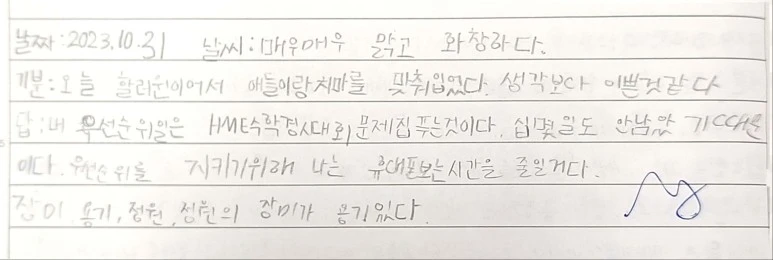 날짜:2023.10.31 날씨:매우매우 맑고 화창하다.
기분:오늘 할러윈이어서 애들이랑 치마를 맞춰입었다. 생각보다 이쁠것같다
답:내 우선순위일은 HME수학경시대회 문제집 푸는것이다. 십몇일도 안남았기때문
이다. 우선순위를 지키기위해 나는 휴대폰보는시간을 줄일거다.
장미, 용기, 정원, 정원의 장미가 용기있다.